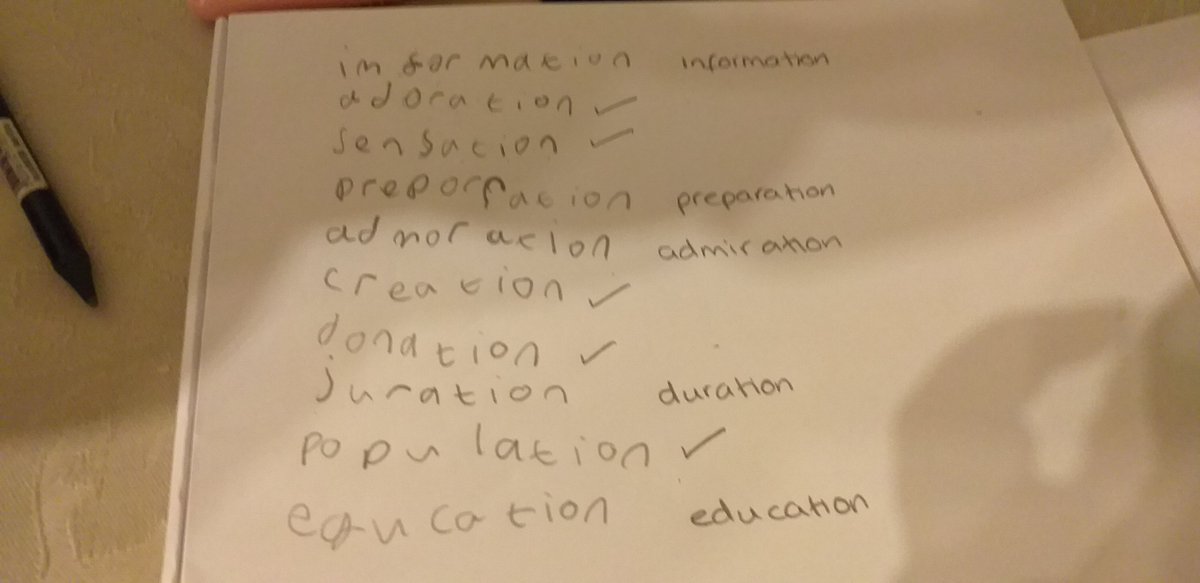 imformation information
adoration ✓
sensation ✓
preporration preparation
admoration admiration
creation ✓
donation ✓
juration duration
population ✓
equcation education